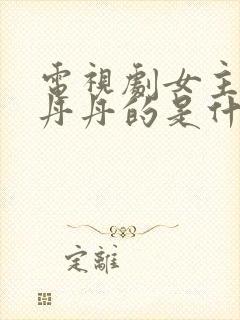 電視劇女主
丹丹的是什
定離